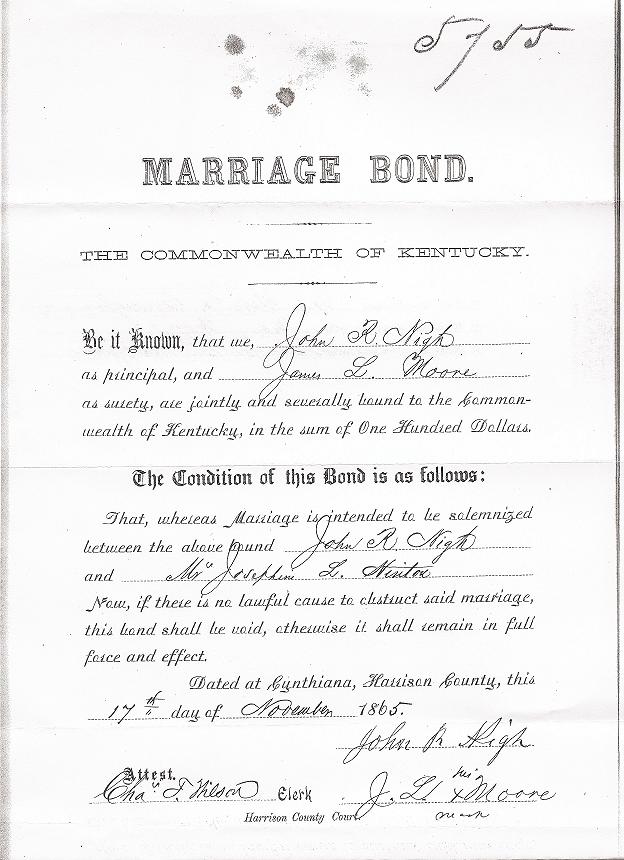 5755
MARRIAGE BOND.
THE COMMONWEALTH OF KENTUCKY.
Be it Known, that we, John R. Nigh
as principal, and James L. Moore
as surety, are jointly and severally bound to the Common-
wealth of Kentucky, in the sum of One Hundred Dollars.
The Condition of this Bond is as follows:
That, whereas Marriage is intended to be solemnized
between the above bound John R. Nigh
and Mrs Josephine L. Hinton
Now, if there is no lawful cause to obstruct said marriage,
this bond shall be void, otherwise it shall remain in full
force and effect.
Dated at Cynthiana, Harrison County, this
17th day of November 1865.
John R Nigh
Attest.
his
Chas. T. Wilson Clerk J. L. x Moore
mark
Harrison County Court